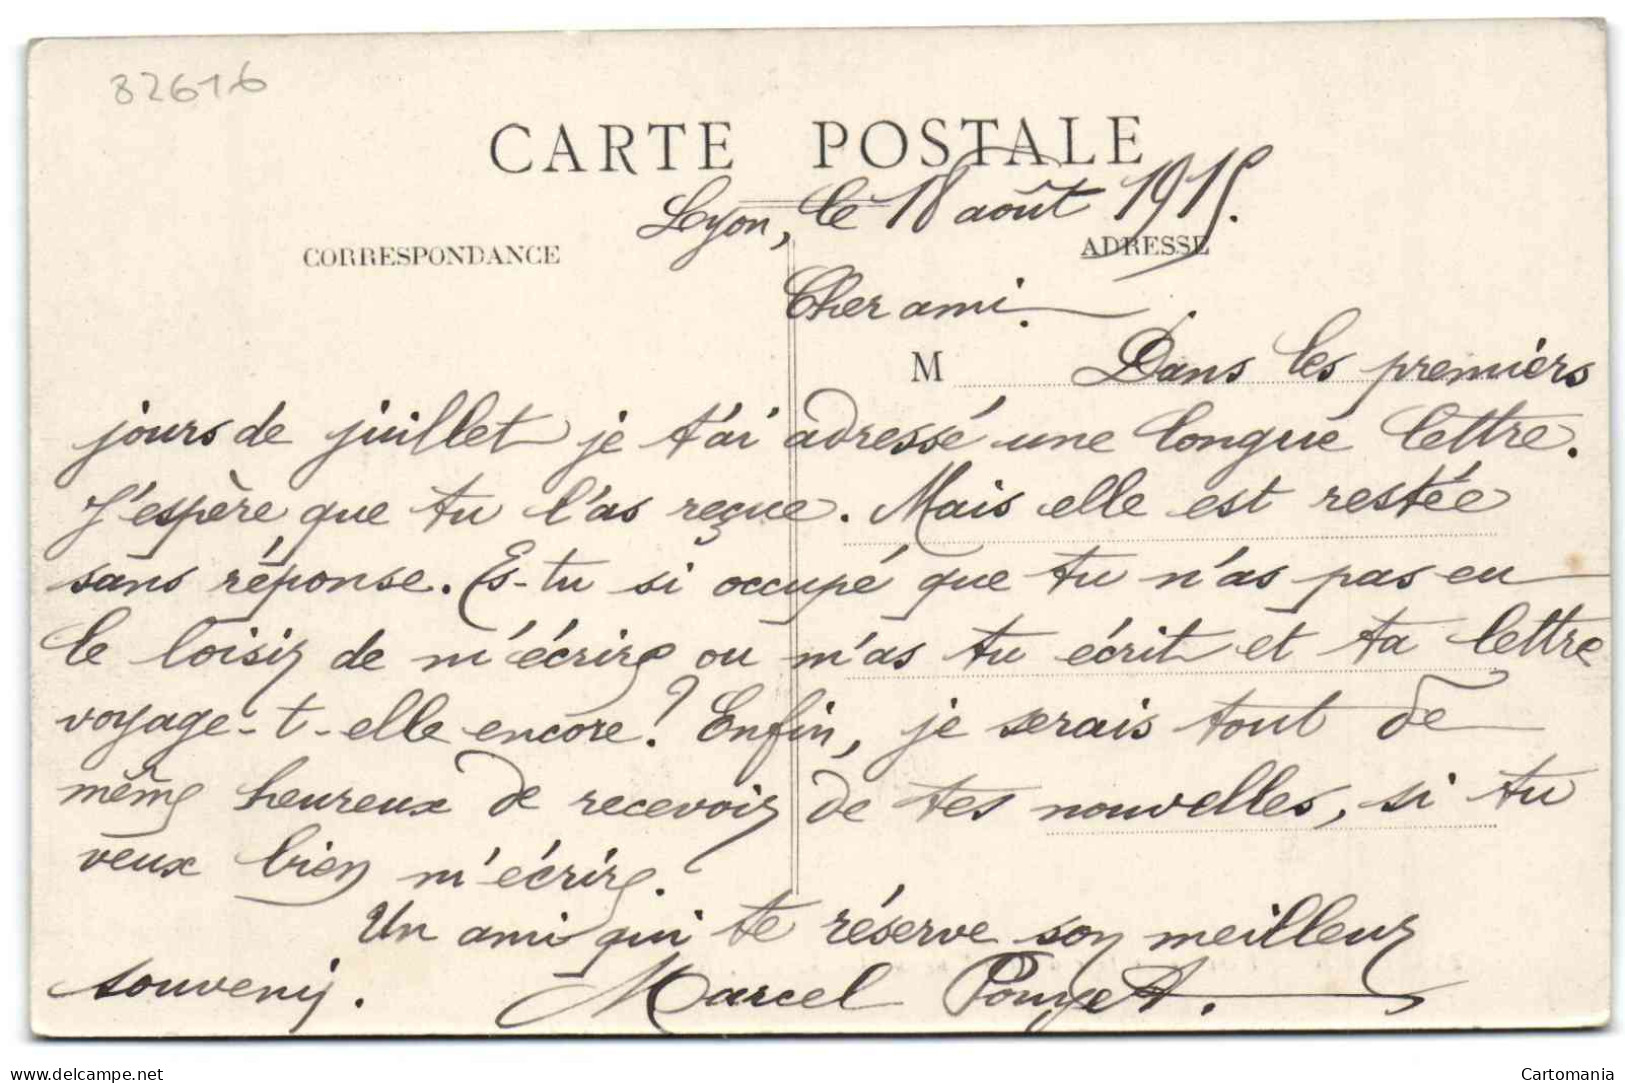 32616
CARTE POSTALE
Lyon, le 18 août 1915.
CORRESPONDANCE
ADRESSE
Cher ami.
M
Dans les premiers
jours de juillet je t'ai adressé une longue lettre.
J'espère que tu l'as reçue. Mais elle est restée
sans réponse. Es-tu si occupé que tu n'as pas eu
le loisir de m'écrire ou m'as tu écrit et ta lettre
voyage-t-elle encore? Enfin, je serais tout de
même heureux de recevoir de tes nouvelles, si tu
veux bien m'écrire.
Un ami qui te réserve son meilleur
souvenir. Marcel Pouget.
www.delcampe.net
Cartomania